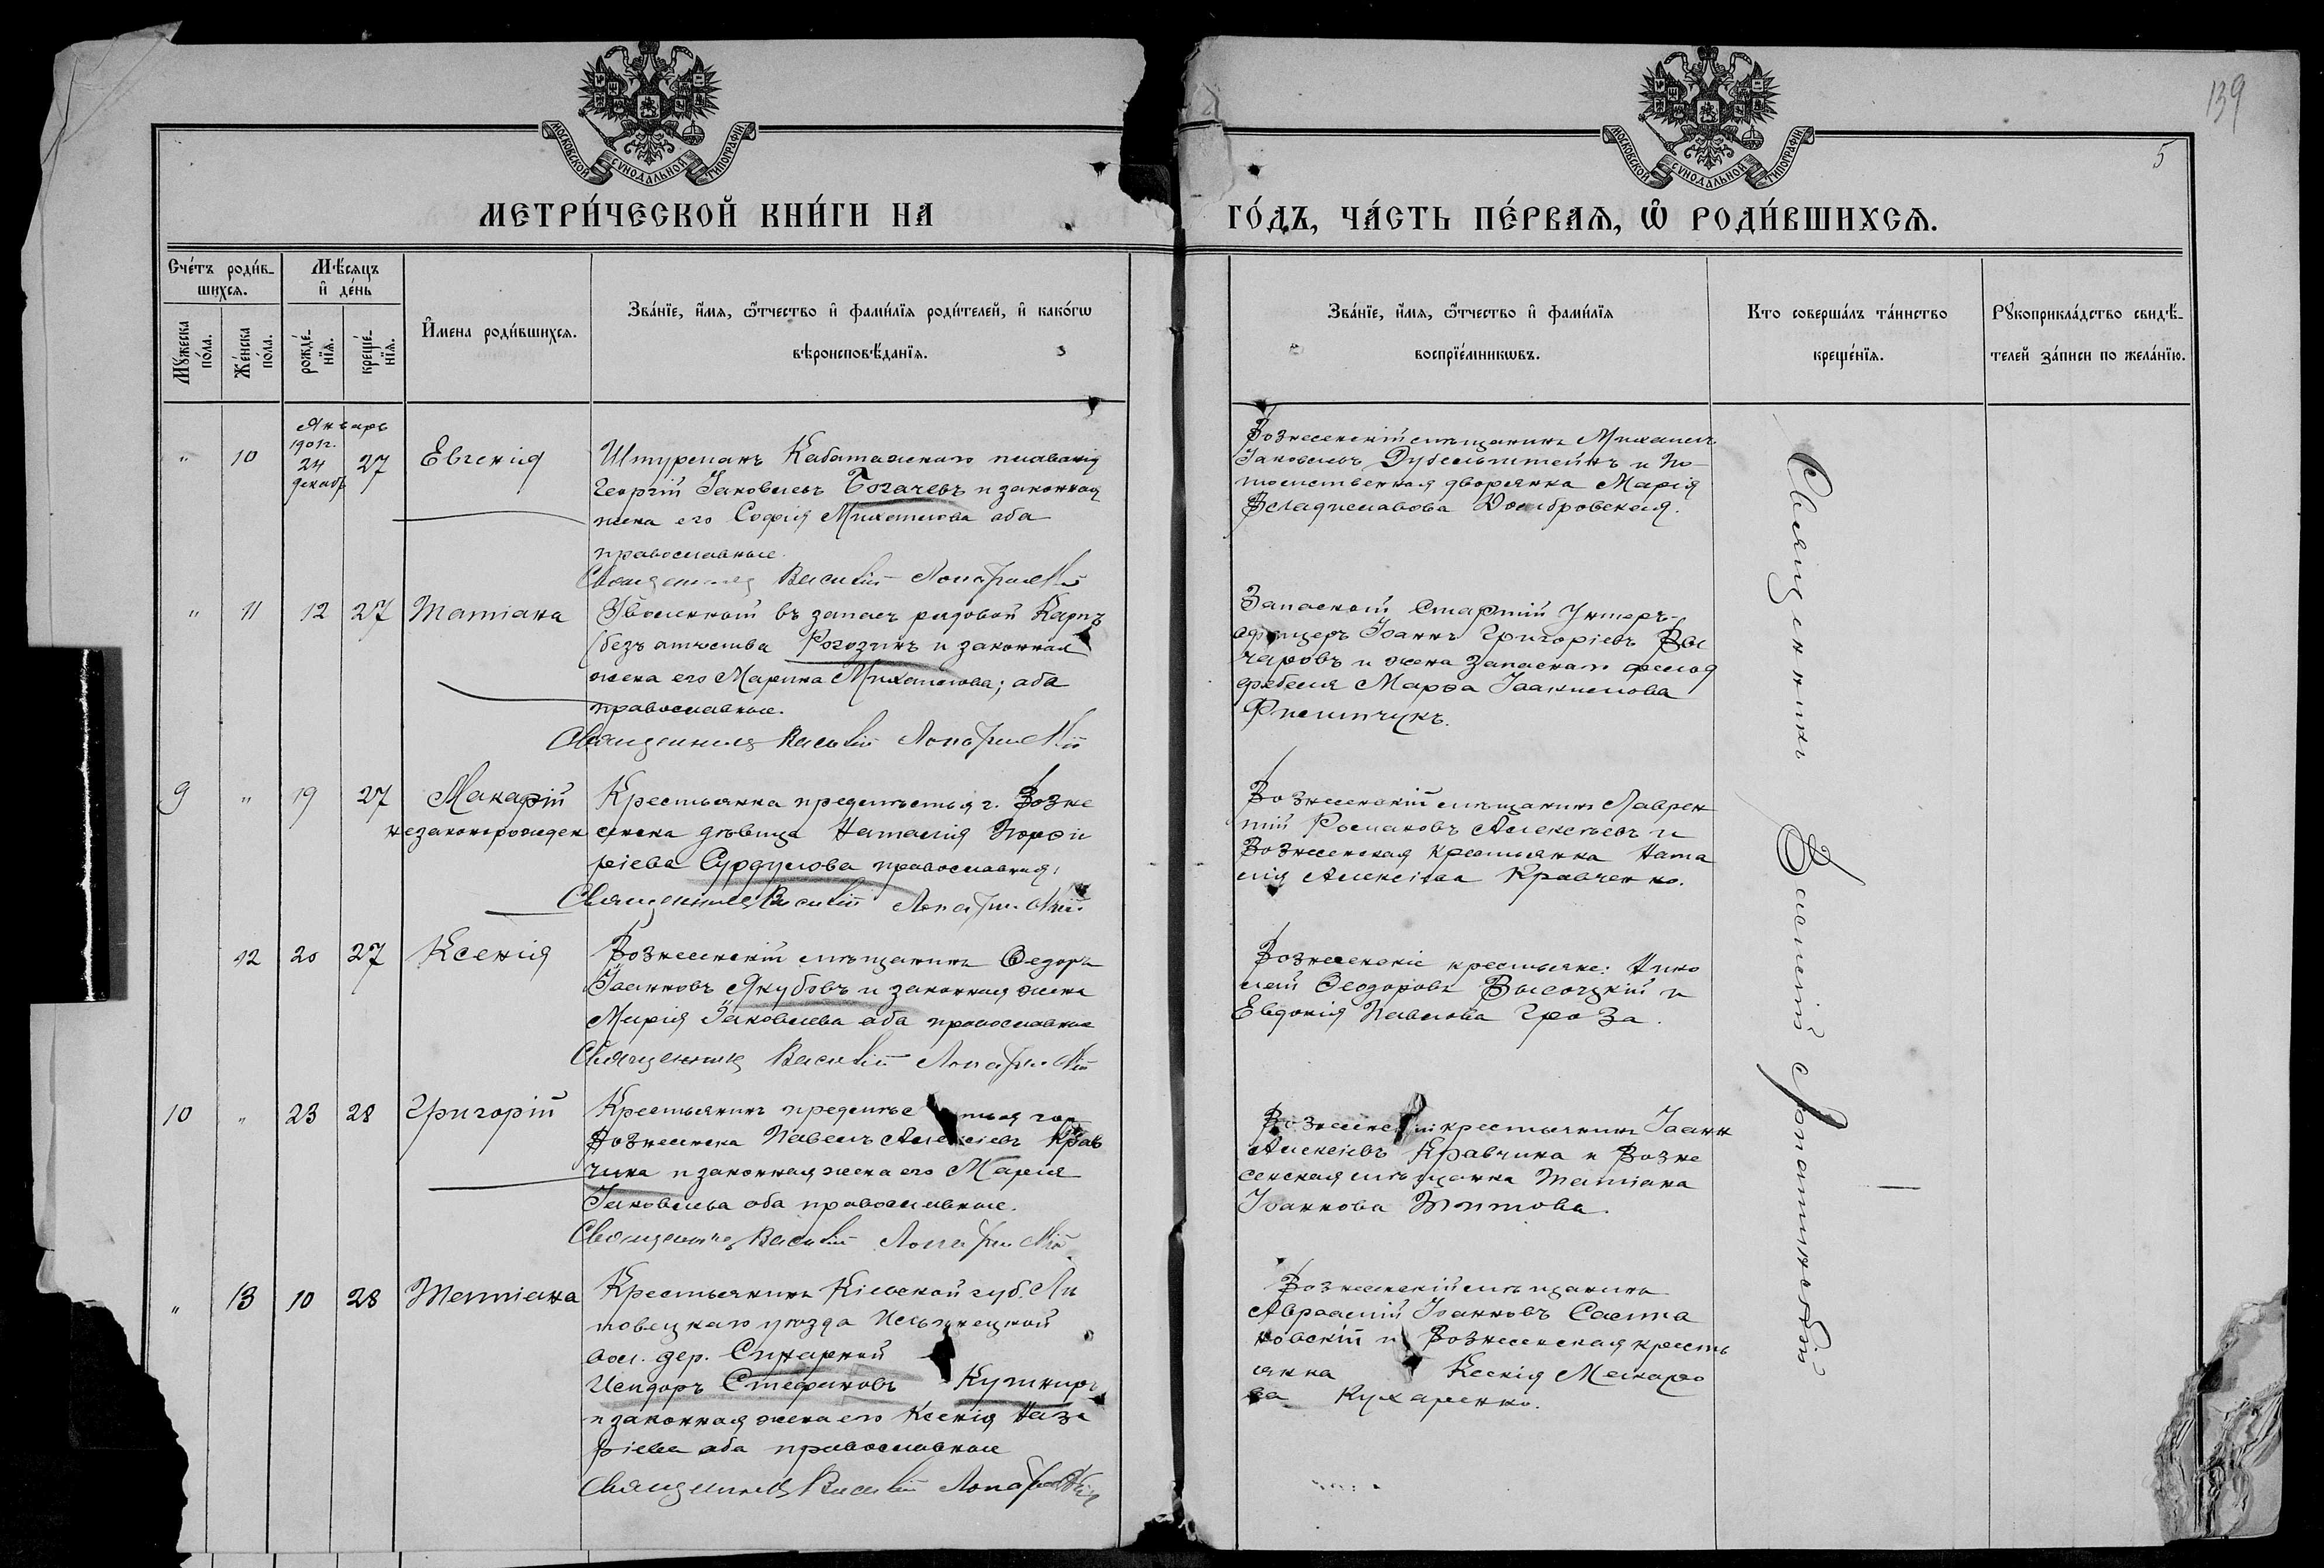 139
5
МОСКОВСКОЙ СѴНОДАЛЬНОЙ ТИПОГРАФІИ
МОСКОВСКОЙ СѴНОДАЛЬНОЙ ТИПОГРАФІИ
МЕТРИ́ЧЕСКОЙ КНИ́ГИ НА
ГО́ДЪ, ЧА́СТЬ ПЕ́РВАѦ, Ѽ РОДИ́ВШИХСѦ.
Сче́тъ роди́в-
шихсѧ.
Мꙋ́жеска по́ла.
Же́нска по́ла.
Мѣ́сяцъ
и҆ де́нь
рожде́-
нїѧ.
креще́-
нїѧ.
И҆мена роди́вшихсѧ.
Зва́нїе, и҆́мѧ, ѻ҆́тчество и҆ фами́лїѧ роди́телей, и҆ како́гѡ
вѣроисповѣ́данїѧ.
Зва́нїе, и҆́мѧ, ѻ҆́тчество и҆ фами́лїѧ
воспрїе́мникѡвъ.
Кто соверша́лъ та́инство
креще́нїѧ.
Рꙋкоприкла́дство свидѣ́-
телей за́писи по жела́нїю.
Январь
" 10 1901г. 24 декабр 27 Евгенія
Штурманъ Кабатажнаго плаванія
Георгій Іаковлевъ Богачевъ и законная
жена его Софія Михаилова оба
православные.
Священникъ Василій
Вознесенскій мѣщанинъ Михаилъ
Іаковлевъ Дубельштейнъ и По-
томственная дворянка Марія
Владиславова Домбровская.
" 11 12 27 Татіана
Уволенный въ запасъ рядовой Карпъ
(безъ отчества Рогозинъ и законная
жена его Марина Михаилова; оба
православные.
Священникъ Василій
Запасной Старшій Унтеръ-
офицеръ Іоаннъ Григоріевъ
и жена запаснаго фельд
фебеля Марѳа Іоакимова
Филипчукъ.
9 " 19 27 Макарій
незаконорожден
Крестьянка предмѣстья г. Возне
сенска дѣвица Наталія Порфи
ріева Сурдулова православная.
Священникъ Василій
Вознесенскій мѣщанинъ Лаврен
тій Романовъ Алексѣевъ и
Вознесенская крестьянка Ната
лія Алексіева Кравченко.
12 20 27 Ксенія
Вознесенскій мѣщанинъ Ѳедоръ
Іоанновъ Якубовъ и законная жена
Марія Іаковлева оба православные
Священникъ Василій
Вознесенскіе крестьяне: Нико
лай Ѳеодоровъ Высоцкій и
Евдокія Павлова Гроза.
10 " 23 28 Григорій
Крестьянинъ предмѣстья гор
Вознесенска Павелъ Алексіевъ Крав
чина и законная жена его Марія
Іаковлева оба православные.
Священникъ Василій
Вознесенскій крестьянинъ Іоаннъ
Алексіевъ Кравчина и Возне
сенская мѣщанка Татіана
Іоаннова Титова.
" 13 10 28 Татіана
Крестьянинъ Кіевской губ. Ли
повецкаго уѣзда
вол. дер.
Исидоръ Стефановъ Кушниръ
и законная жена его Ксенія Наза
ріева оба православные
Священникъ Василій
Вознесенскій мѣщанинъ
Авраамій Іоанновъ
и Вознесенская кресть
янка Ксенія Макаро
ва Кухаренко.
Священникъ Василій